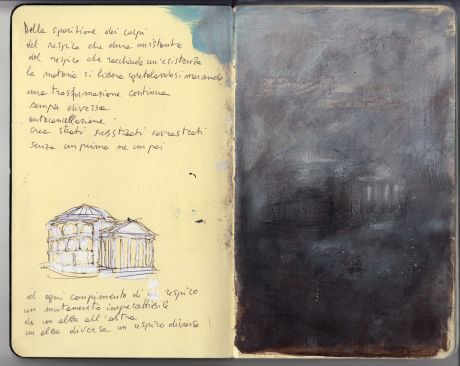 Della sparizione dei corpi
del respiro che dura un istante
del respiro che racchiude un'esistenza
la materia si libera sgretolandosi
una trasformazione continua
sempre diversa
autocancellazione
crea strati substrati sovrastrati
senza un prima ne un poi
ad ogni compimento di un respiro
un mutamento impercettibile
da un alba all'altra
un alba diversa un respiro diverso